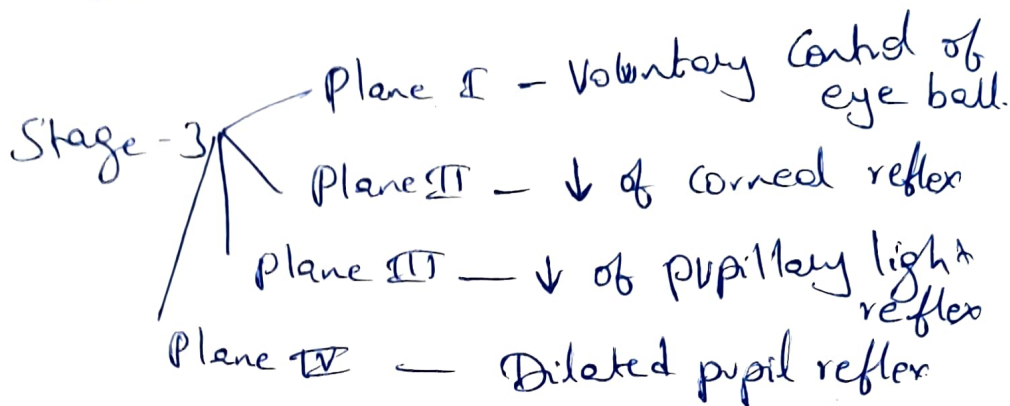 Plane I - Voluntary Control of
eye ball.
Stage - 3
Plane II - ↓ of corneal reflex
Plane III - ↓ of pupillary light
reflex
Plane IV - Dilated pupil reflex